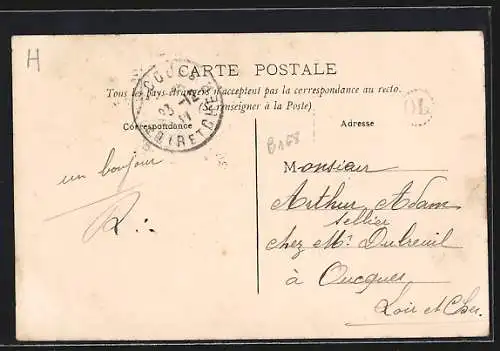 H
CARTE POSTALE
Tous les pays étrangers n'acceptent pas la correspondance au recto.
(Se renseigner à la Poste)
OUCQUES
23 -12
11
LOIR ET CHER
OL
Correspondance
Adresse
B168
un bonjour
Monsieur
Arthur Adam
sellier
chez Mr Dubreuil
à Oucques
Loir et Cher